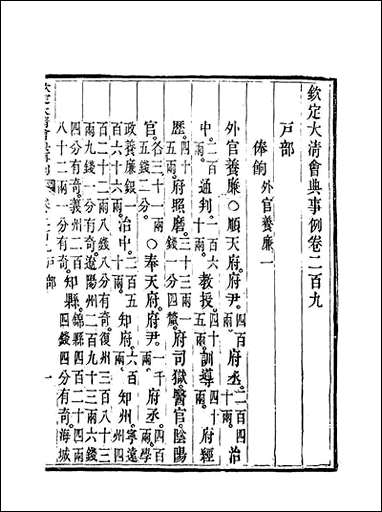 欽定大清會典事例卷二百九
戶部
俸餉 外官養廉一
外官養廉○順天府府尹。四百兩。府丞。二百四十兩。治
中。二百兩。通判。一百六十兩。教授。四十五兩。訓導。四十兩。府經
歷。四十五兩。府照磨。三十三兩一錢一分四釐。府司獄。醫官。陰陽
官。各三十一兩五錢二分。○奉天府府尹。一千兩。府丞。四百兩。學
政養廉銀一百六十六兩。治中。二百五十兩。知府。六百兩。知州。寧遠州四
百二十二兩八錢八分有奇。復州三百八十三
兩九錢一分有奇。遼陽州二百九十三兩六錢
四分有奇。義州二百八十二兩一分有奇。知縣。錦縣四百二十四兩四錢四分有奇。海城
戶部
一